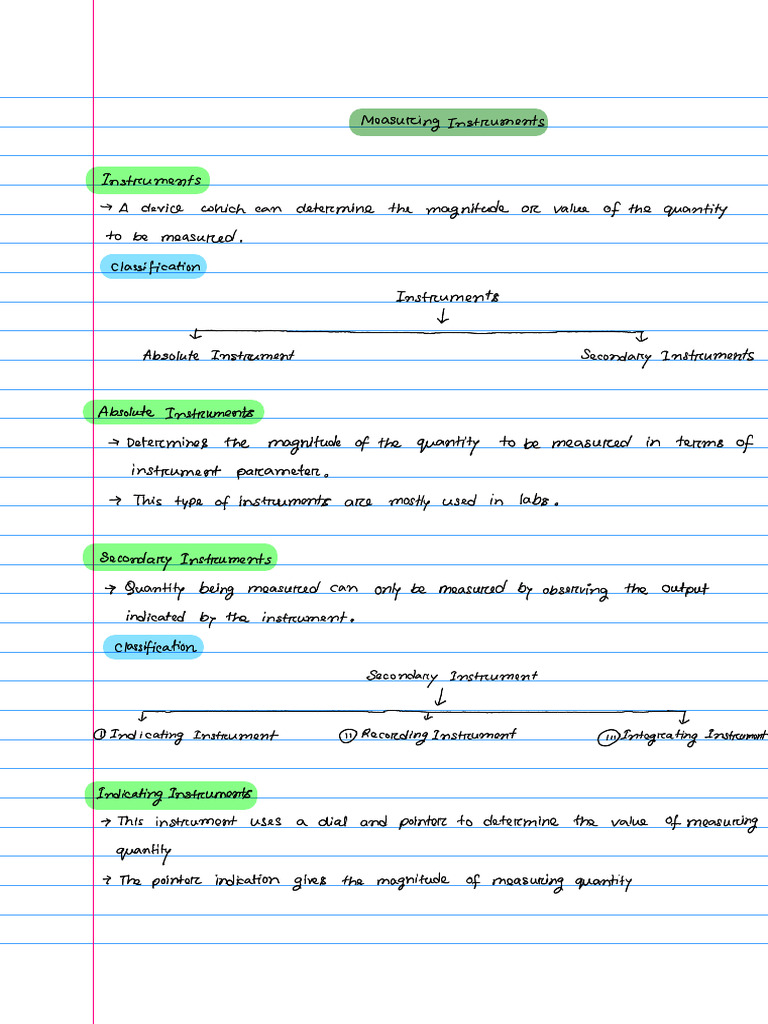 Measuring Instruments
Instruments
→ A device which can determine the magnitude or value of the quantity
to be measured.
Classification
Instruments
Absolute Instrument Secondary Instruments
Absolute Instruments
→ Determines the magnitude of the quantity to be measured in terms of
instrument parameter.
→ This type of instruments are mostly used in labs.
Secondary Instruments
→ Quantity being measured can only be measured by observing the output
indicated by the instrument.
Classification
Secondary Instrument
(i) Indicating Instrument (ii) Recording Instrument (iii) Integrating Instrument
Indicating Instruments
→ This instrument uses a dial and pointer to determine the value of measuring
quantity
→ The pointer indication gives the magnitude of measuring quantity